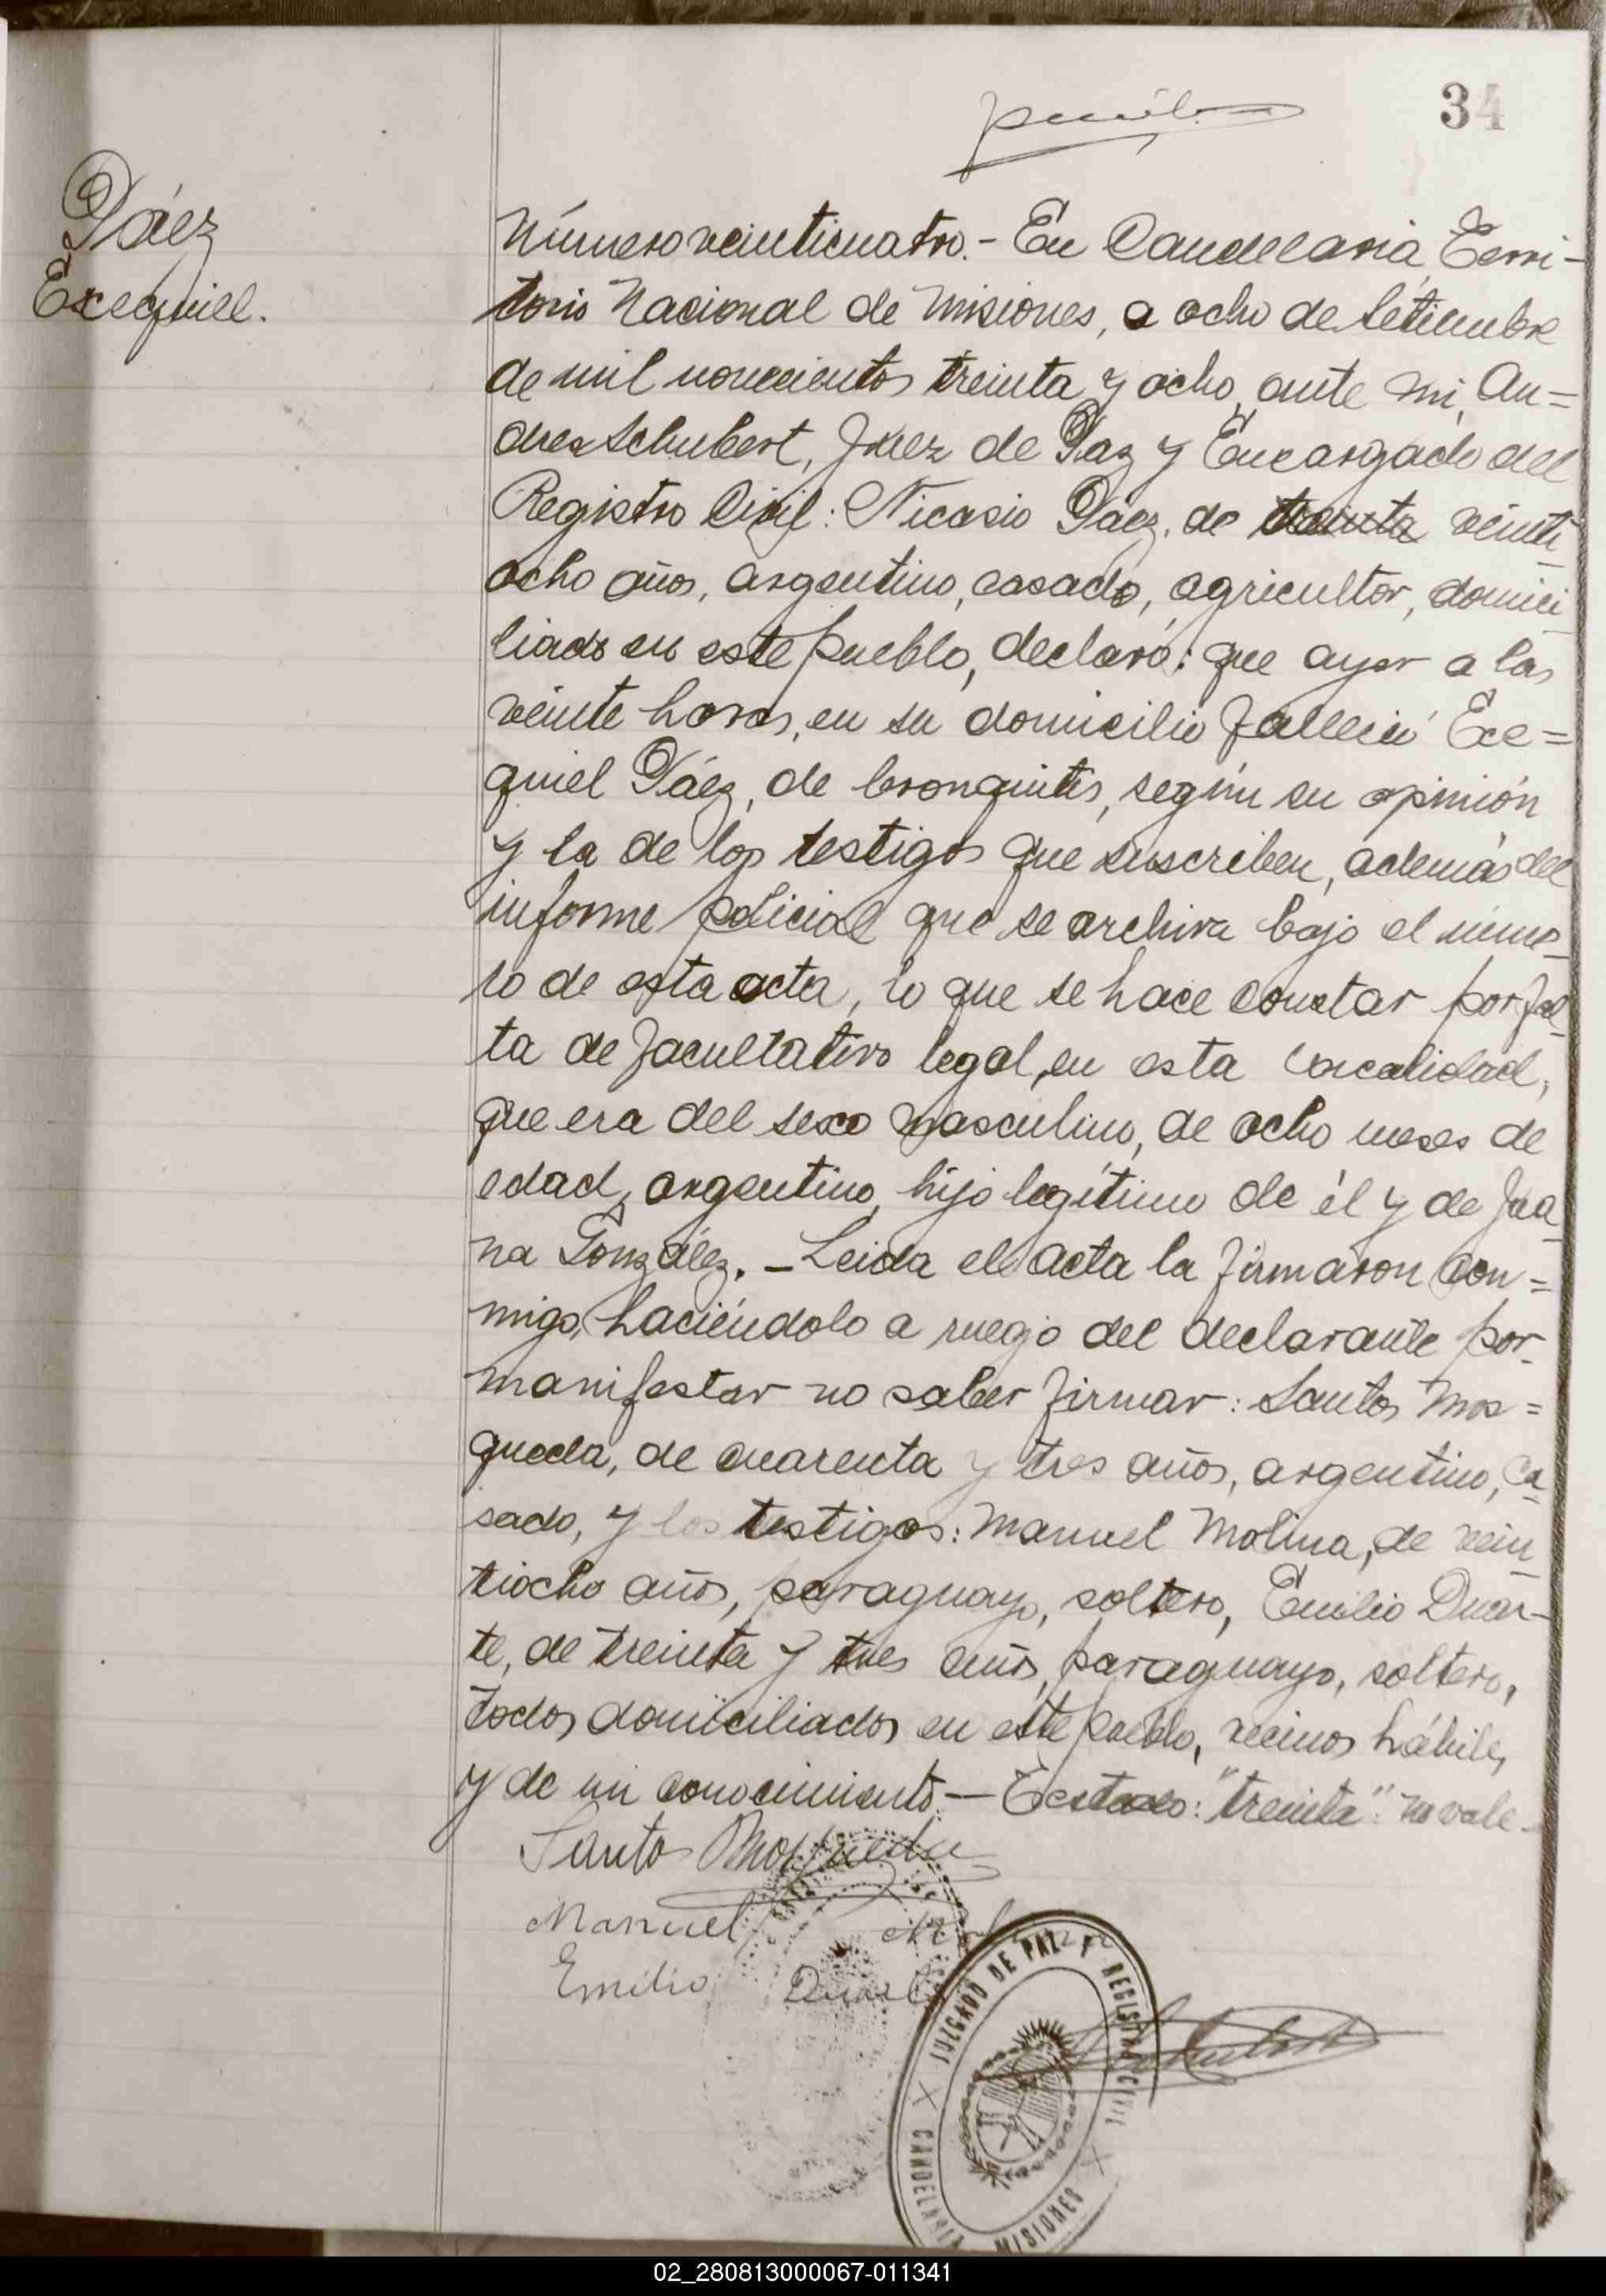 34
Páez
Exequiel.
Número veinticuatro.- En Candelaria, Terri-
torio Nacional de Misiones, a ocho de Setiembre
de mil novecientos treinta y ocho, ante mí, An=
dres Schubert, Juez de Paz y Encargado del
Registro Civil: Nicasio Páez, de treinta veinti-
ocho años, argentino, casado, agricultor, domici-
liado en este pueblo, declaró: que ayer a las
veinte horas, en su domicilio falleció Exe=
quiel Páez, de bronquitis, según su opinión
y la de los testigos que suscriben, además del
informe policial que se archiva bajo el núme-
ro de esta acta, lo que se hace constar por fal-
ta de facultativo legal, en esta localidad,
que era del sexo masculino, de ocho meses de
edad, argentino, hijo legítimo de él y de Jua-
na González. - Leida el acta la firmaron con=
migo, haciéndolo a ruego del declarante por
manifestar no saber firmar: Santos Mos=
queda, de cuarenta y tres años, argentino, ca-
sado, y los testigos: Manuel Molina, de vein-
tiocho años, paraguayo, soltero, Emilio Duar-
te, de treinta y tres años, paraguayo, soltero,
todos domiciliados en este pueblo, vecinos hábiles
y de mi conocimiento.- Testado: "treinta": no vale-
Santos Mosqueda
Manuel Molina
Emilio Duarte
JUZGADO DE PAZ Y REGISTRO CIVIL
CANDELARIA
MISIONES
Schubert
02_280813000067-011341